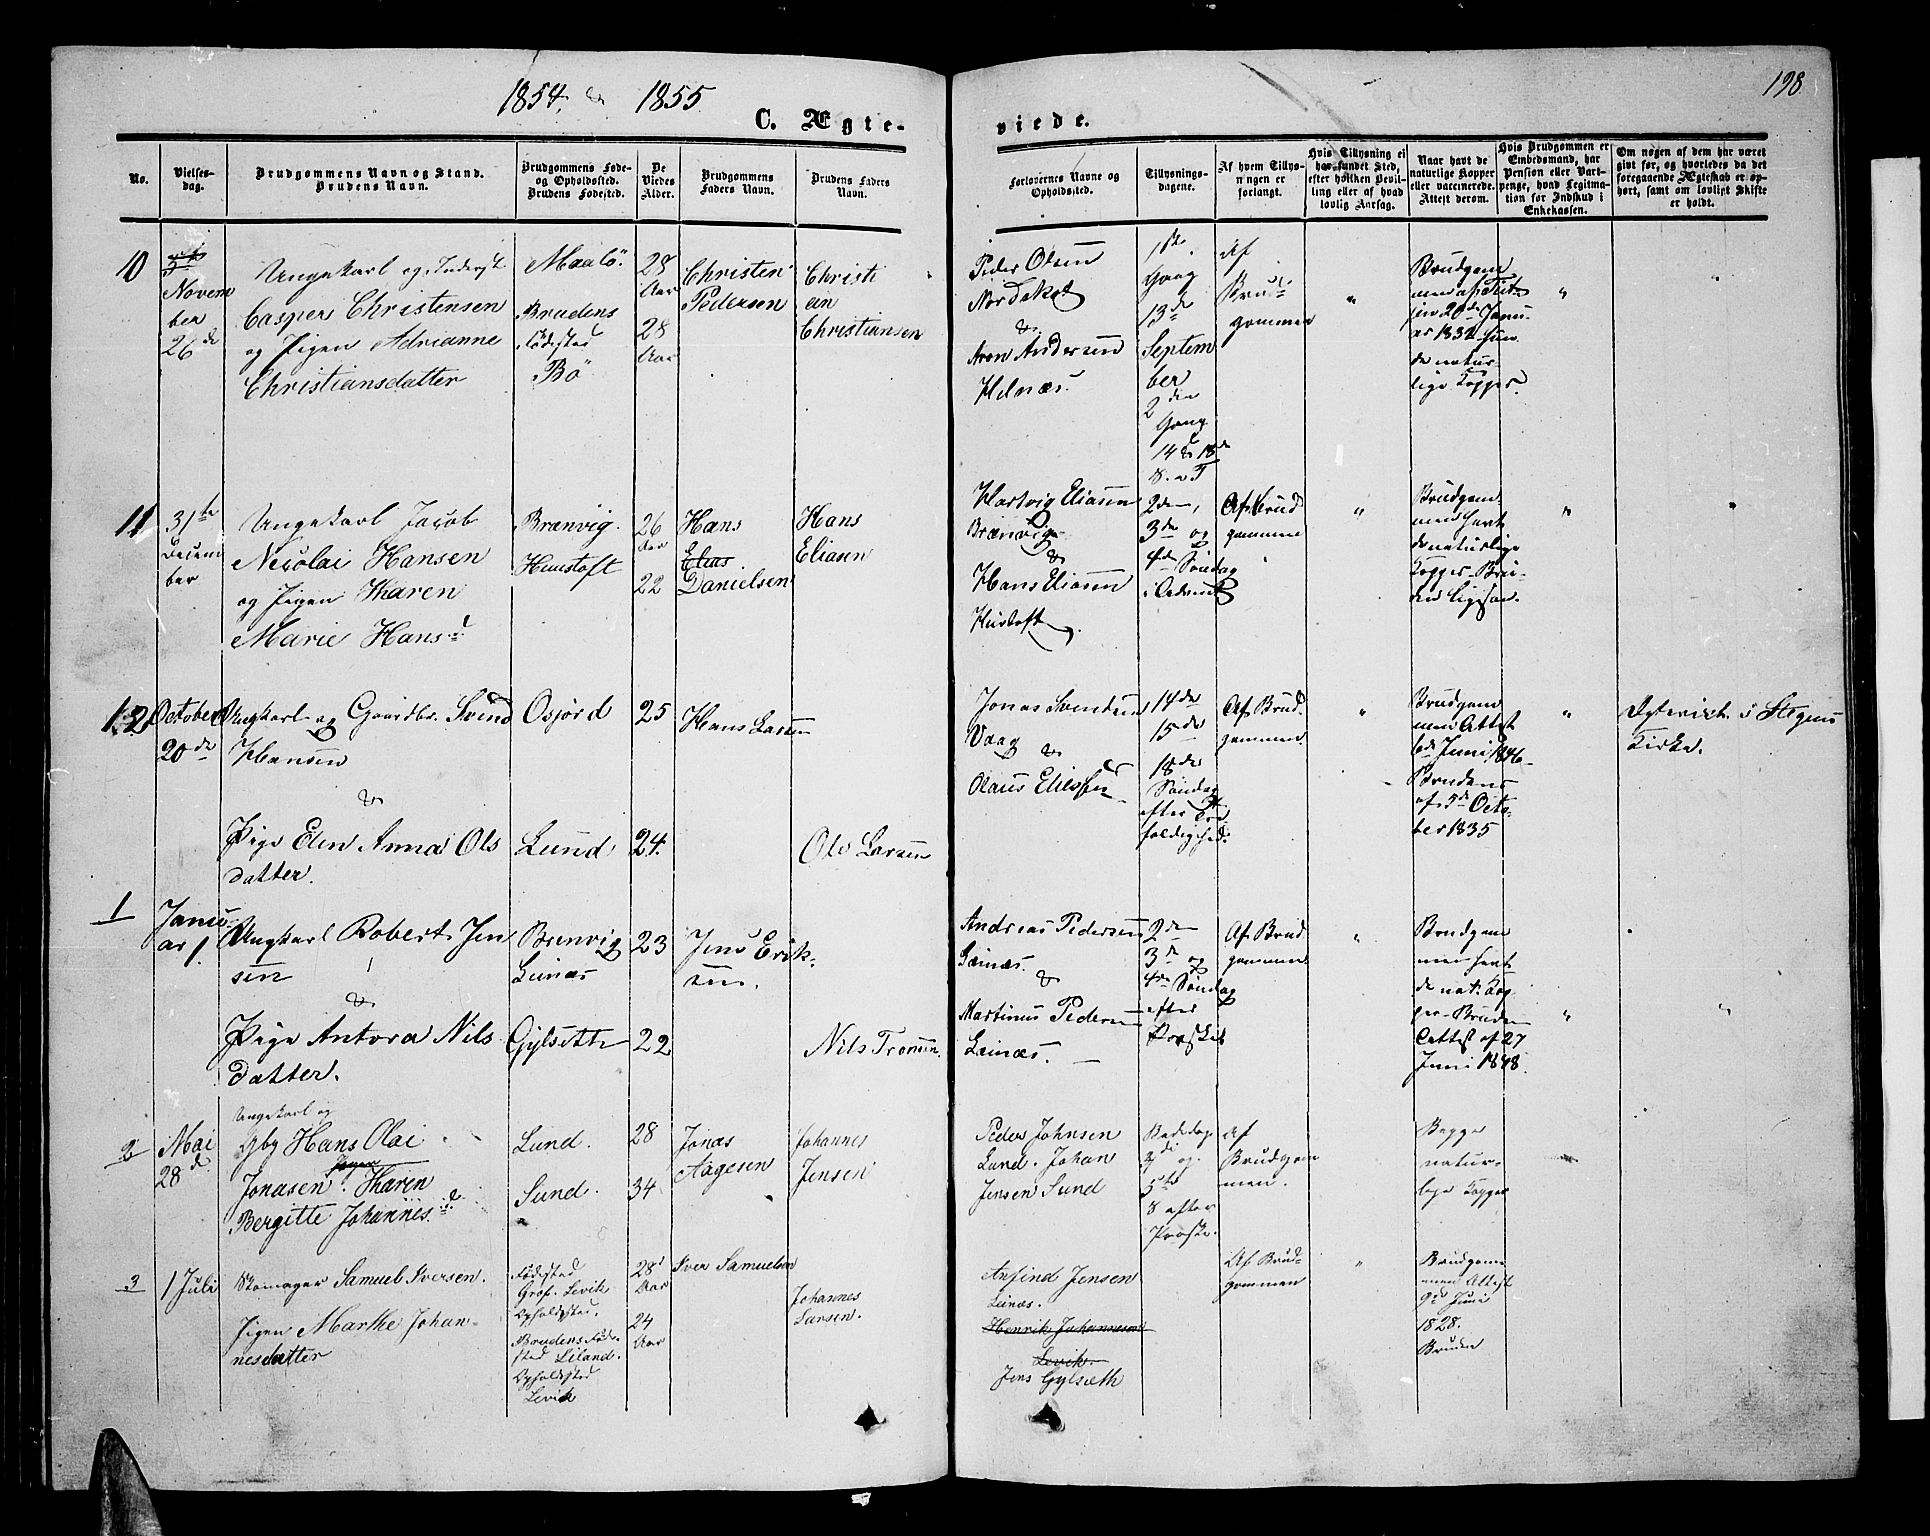 1854 & 1855
198
C. Ægte-
viede.
No.
Vielses-
dag.
Brudgommens Navn og Stand.
Brudens Navn.
Brudgommens Føde-
og Opholdssted.
Brudens Fødested.
De
Viedes
Alder.
Brudgommens
Faders Navn.
Brudens Faders
Navn.
Forlovernes Navne og
Opholdssted.
Tillysnings-
dagene.
Af hvem Tillys-
ningen er
forlangt.
Hvis Tillysning ei
har fundet Sted,
efter hvilken Bevil-
ling eller af hvad
lovlig Aarsag.
Naar havt de
naturlige Kopper
eller vaccinerede.
Attest derom.
Hvis Brudgommen er
Embedsmand, har
Pension eller Vart-
penge, hvad Legitima-
tion for Indskud i
Enkekassen.
Om nogen af dem har været
givt før, og hvorledes da det
foregaaende Ægteskab er op-
hørt, samt om lovligt Skifte
er holdt.
10
Novem
ber
26de
Ungekarl og Inderst
Casper Christensen
og Pigen Adrianne
Christiansdatter
Maalö.
Brudens
Födested
Bö
28
Aar
28
Aar
Christen
Pedersen
Christi
an
Christiansen
Peder Olsen
Nordskot
&
Aron Andersen
Helnæs.
1ste
Gang
13de
Septem
ber
2den
Gang
14 & 18de
S. e T
Af
Brud-
gommen
"
Brudgom
men
20de Janu
ar 1832
de natur
lige Kopper.
"
11
31te
Decem
ber
Ungekarl Jacob
Nicolai Hansen
og Pigen Karen
Marie Hansd.
Brænvig.
Hustoft
26
Aar
22
Hans
Elias
Danielsen
Hans
Eliasen
Hartvig Eliasen
Brænvig
&
Hans Eliasen
Hustoft
2den,
3de og
4de Söndag
i Advent
Af Brud
gommen
"
Brudgom
men havt
de naturlige
Kopper - Bru-
den ligesaa.
"
12
October
20de
Ungkarl og Gaardbr. Svend
Hansen
&
Pige Elen Anna Ols
datter.
Osjord
Lund
25
24.
Hans Larsen
Ole Larsen
Jonas Svendsen
Vaag
&
Olaus Eliesen
14de
15de
18de
Söndag
efter Tre
foldighed.
Af Brud
gommen.
"
Brudgom
men Attest
6de Juni 1846
Brudens
af 5de Octo-
ber 1835
"
Egteviet i Stegens
Kirke.
1
Janu
ar 1.
Ungkarl Robert Jen
sen
&
Pige Antora Nils
datter.
Brenvig
Leinæs
Gylseth
23
22
Jens Erik-
sen.
Nils Tronsen.
Andreas Pedersen
Leinæs.
&
Martinus Pedersen
Leinæs.
2den
3de og
4de Söndag
efter
Paaske
Af Brud
gommen
"
Brudgom
men havt
de nat: Kop
per - Bruden
Attest af 27
Juni 1848.
"
2
Mai
28de
Ungekarl og
Hans Olai
Jonasen. Pigen Karen
Bergitte Johannesd.
Lund.
Sund.
28
34
Jonas
Aagesen
Johannes
Jensen
Peder Johnsen
Lund. Johan
Jensen Sund
Bededag
og
5te
S efter
Paaske.
Af
Brudgom
men.
Begge
natur-
lige Kopper
3
1 Juli
Skomager Samuel Iversen.
Pigen Marthe Johan-
nesdatter
Födested
Grof. Levik
Opholdssted.
Brudens Föde-
sted Liland.
Opholdssted
Levik
28
Aar
24
Aar
Iver Samuelsen
Johannes
Larsen.
Anfind Jensen
Leinæs.
Henrik Johannesen
Levik.
Jens Gylseth
Af Brud-
gommen
"
Brudgom
men Attest
9de Juni
1828.
Bruden